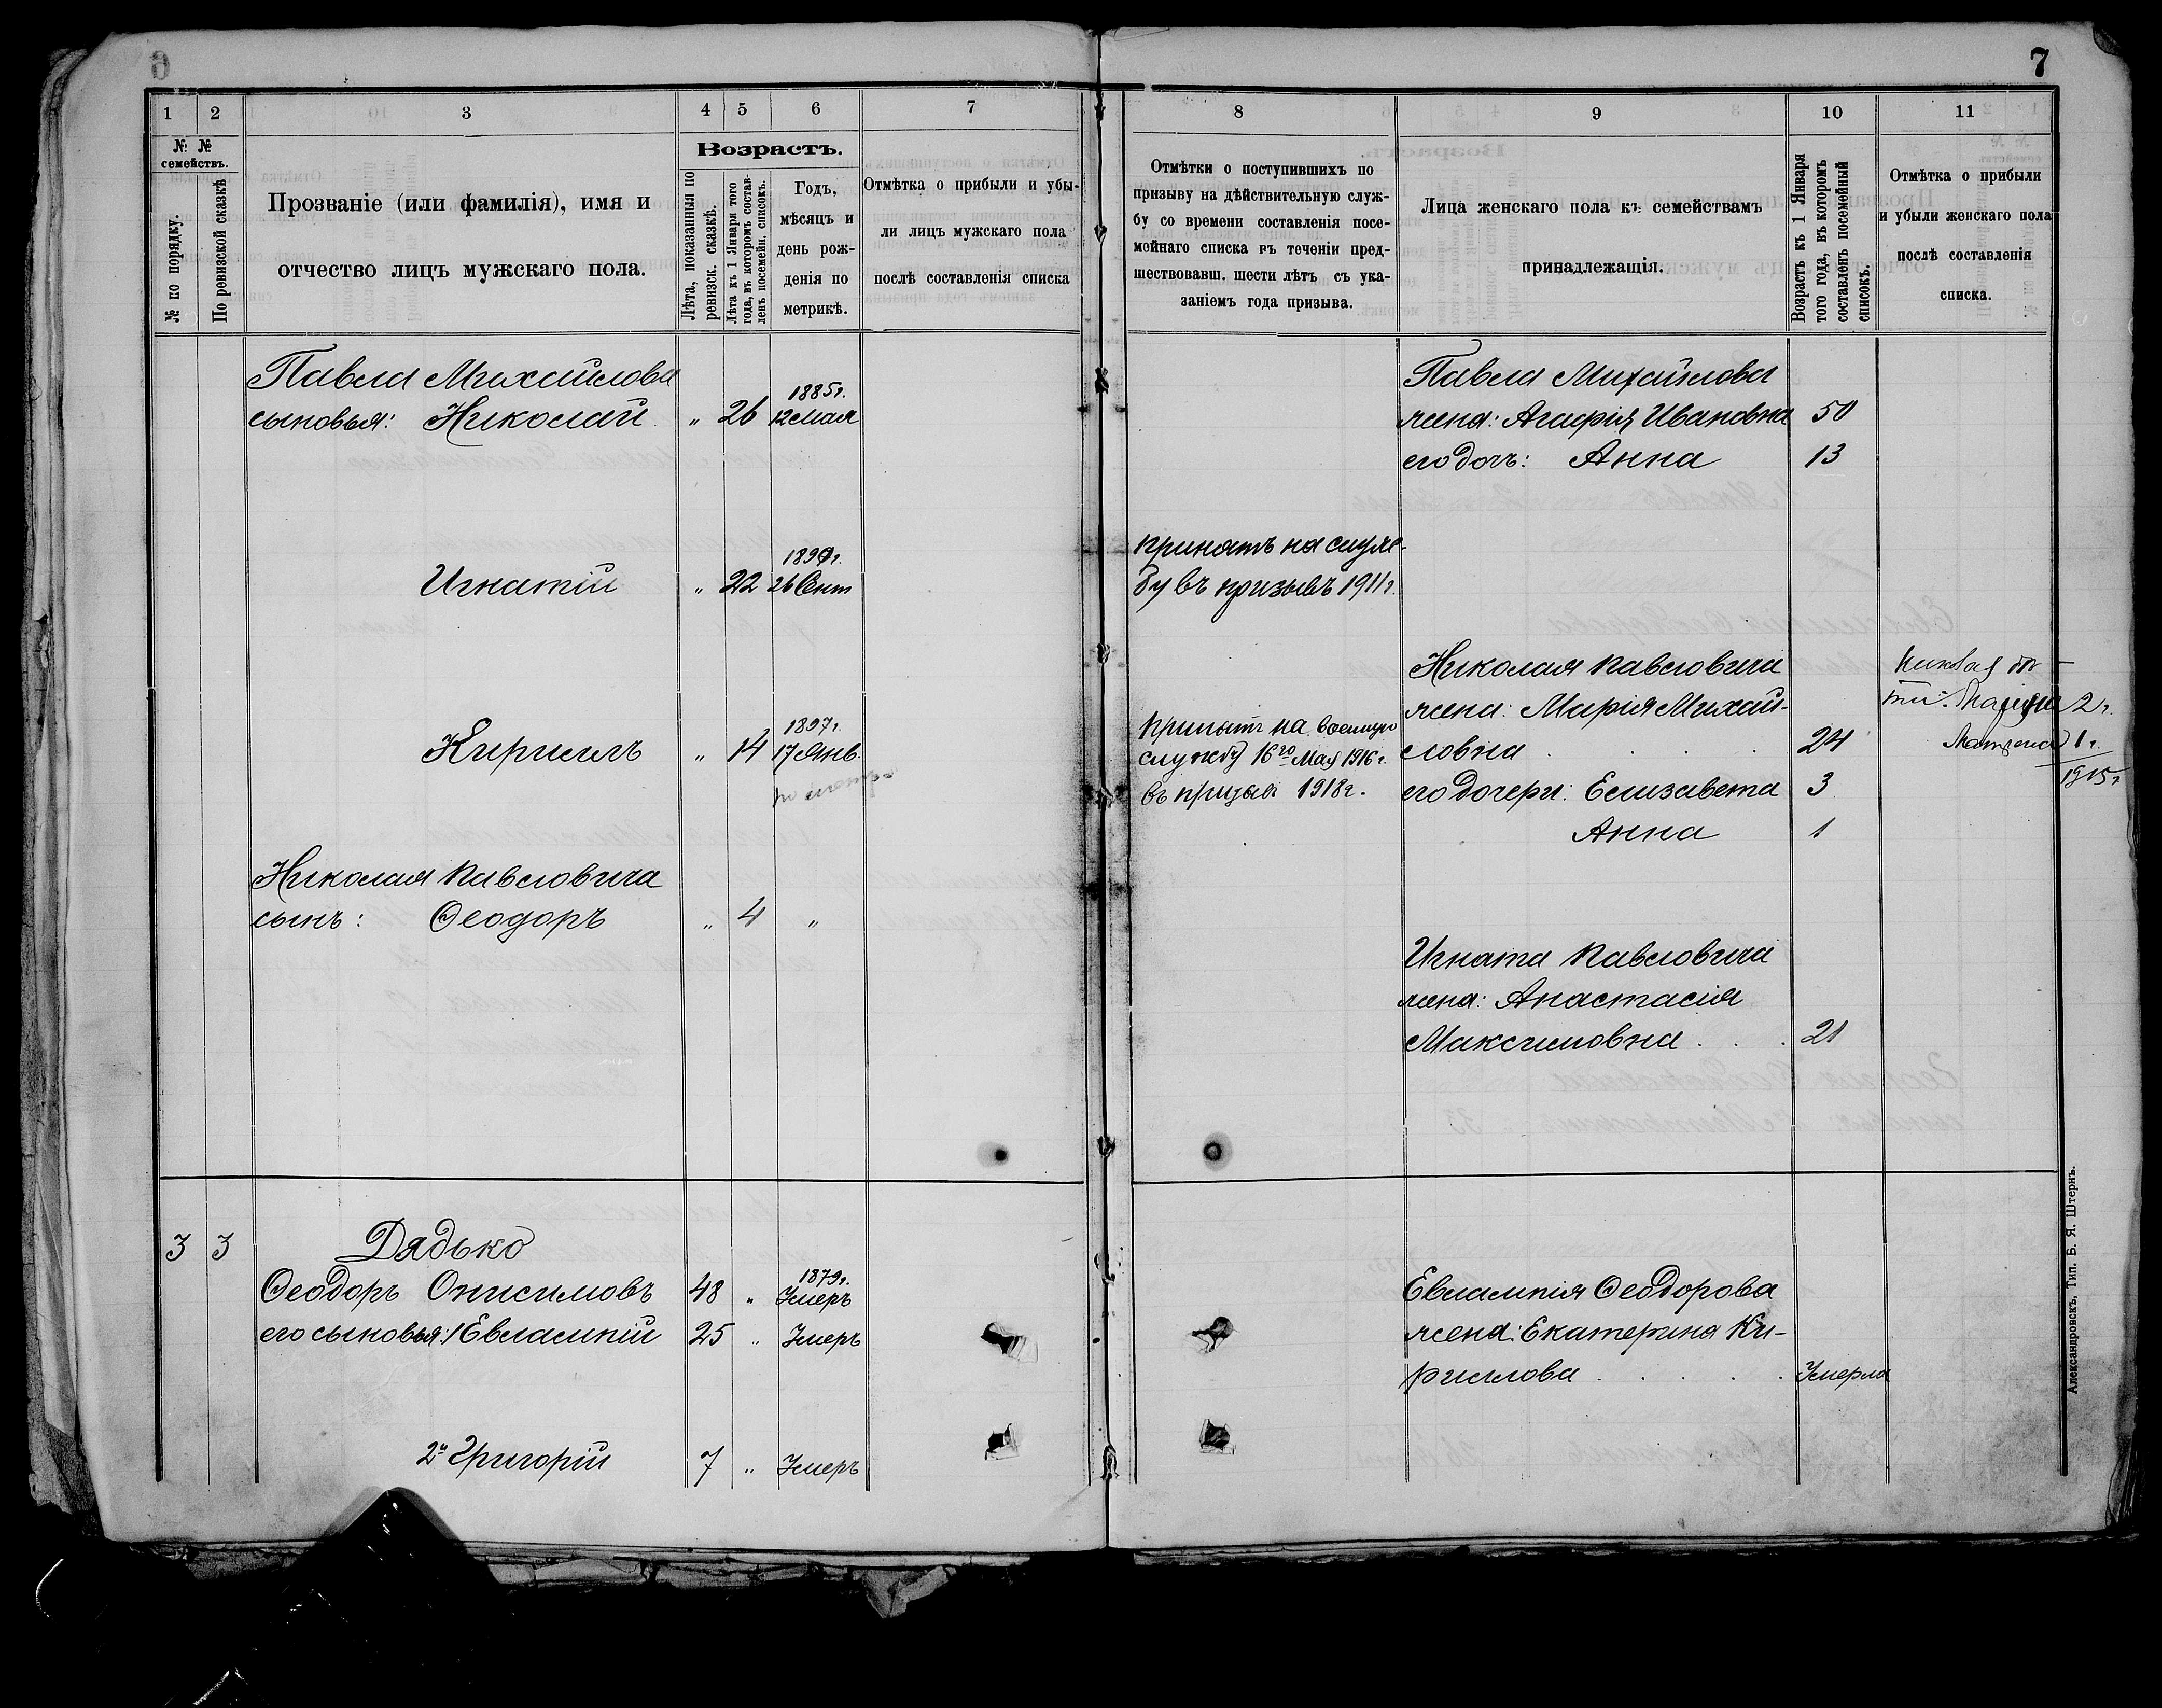 7
1 2 3 4 5 6 7
№ № семействъ.
№ по порядку.
По ревизской сказкѣ
Прозваніе (или фамилія), имя и
отчество лицъ мужскаго пола.
Возрастъ.
Лѣта, показанныя по
ревизск. сказкѣ.
Лѣта къ 1 Января того
года, въ которомъ состав-
ленъ посемейн. списокъ.
Годъ,
мѣсяцъ и
день рож-
денія по
метрикѣ.
Отмѣтка о прибыли и убы-
ли лицъ мужскаго пола
послѣ составленія списка
Павла Михайлова
1885г.
сыновья: Николай „ 26 12 Мая
Игнатій „ 22 26 Сент
1897г.
Кириллъ „ 14 17 Янв.
Николая Павловича
сынъ: Ѳеодоръ „ 4 „
3 3 Дядько
1879г.
Ѳеодоръ Онисимовъ 48 „ Умеръ
его сыновья: 1 Евлампій 25 „ Умеръ
2й Григорій 7 „ Умеръ
8 9 10 11
Отмѣтки о поступившихъ по
призыву на дѣйствительную служ-
бу со времени составленія посе-
мейнаго списка въ теченіи пред-
шествовавш. шести лѣтъ съ ука-
заніемъ года призыва.
Лица женскаго пола къ семействамъ
принадлежащія.
Возрастъ къ 1 Января
того года, въ которомъ
составленъ посемейный
списокъ.
Отмѣтка о прибыли
и убыли женскаго пола
послѣ составленія
списка.
Павла Михайлова
жена: Агафія Ивановна 50
его дочь: Анна 13
Принятъ на служ-
бу въ призывъ 1911г.
Николая Павловича
жена: Марія Михай-
ловна 24
его дочери: Елизавета 3
Анна 1
Принятъ на военную
службу 16го Мая 1916г.
въ призывъ 1918г.
2г.
1г.
1915г
Игната Павловича
жена: Анастасія
Максимовна 21
Евлампія Ѳеодорова
жена: Екатерина Ки-
рилова Умерла
Александровскъ, Тип. Б. Я. Штернъ.